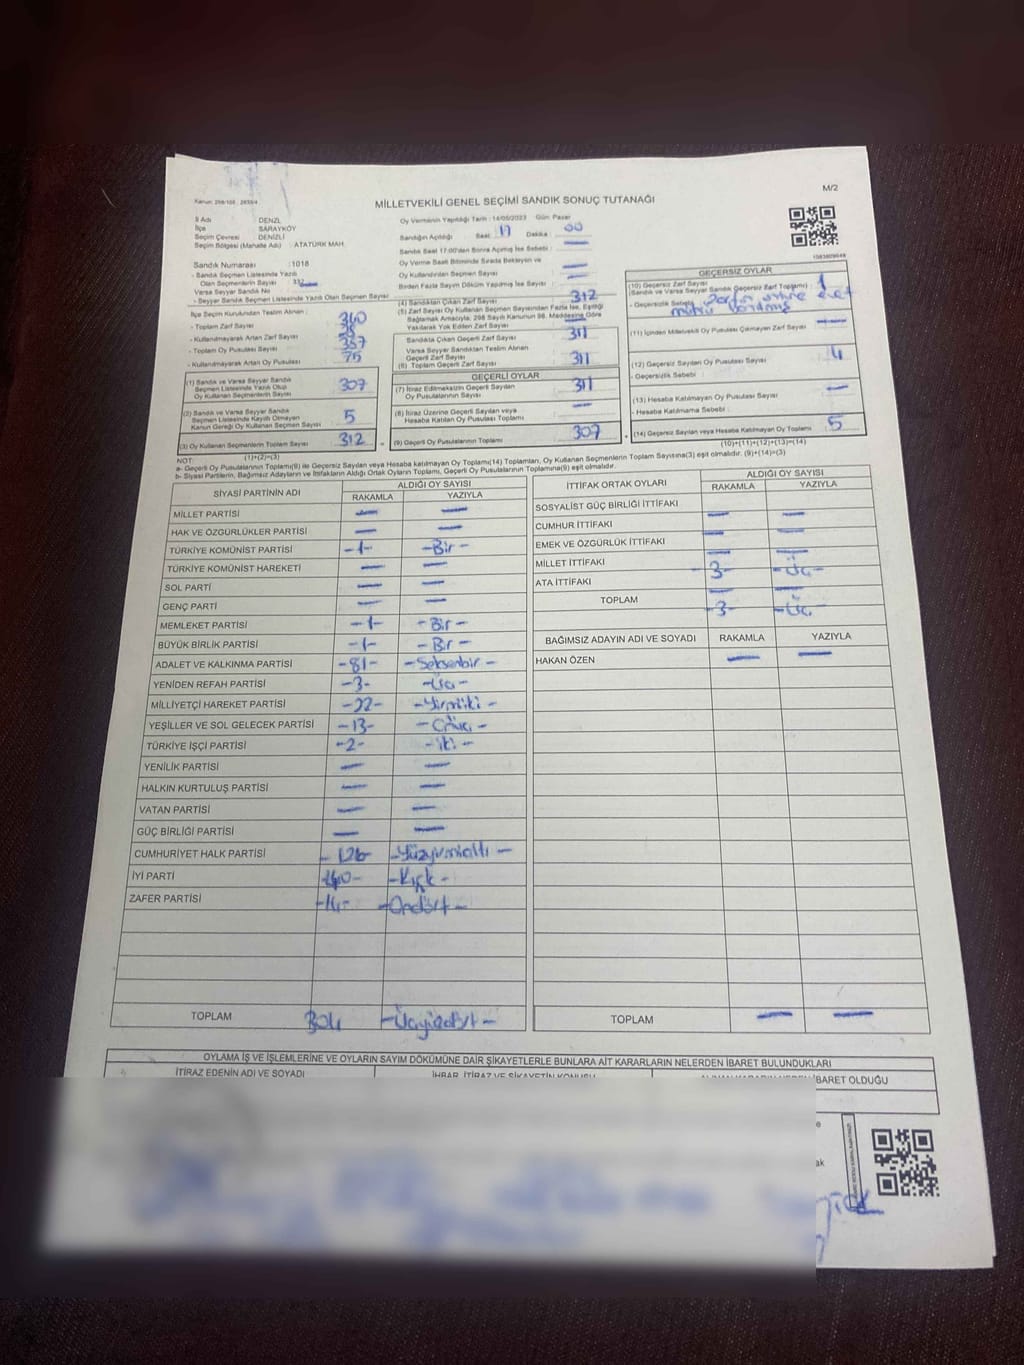 M/2
Kanun: 298/105 , 2839/4
MİLLETVEKİLİ GENEL SEÇİMİ SANDIK SONUÇ TUTANAĞI
İl Adı : DENİZLİ
İlçe : SARAYKÖY
Seçim Çevresi : DENİZLİ
Seçim Bölgesi (Mahalle Adı) : ATATÜRK MAH.
Sandık Numarası : 1018
- Sandık Seçmen Listesinde Yazılı
Olan Seçmenlerin Sayısı : 337
Varsa Seyyar Sandık No
- Seyyar Sandık Seçmen Listesinde Yazılı Olan Seçmen Sayısı
İlçe Seçim Kurulundan Teslim Alınan ;
- Toplam Zarf Sayısı 360
- Kullanılmayarak Artan Zarf Sayısı
- Toplam Oy Pusulası Sayısı 387
- Kullanılmayarak Artan Oy Pusulası 75
(1) Sandık ve Varsa Seyyar Sandık
Seçmen Listesinde Yazılı Olup
Oy Kullanan Seçmenlerin Sayısı 307
(2) Sandık ve Varsa Seyyar Sandık
Seçmen Listesinde Kayıtlı Olmayan
Kanun Gereği Oy Kullanan Seçmen Sayısı 5
(3) Oy Kullanan Seçmenlerin Toplam Sayısı 312
(1)+(2)=(3)
Oy Vermenin Yapıldığı Tarih : 14/05/2023 Gün Pazar
Sandığın Açıldığı Saat : 17 Dakika : 00
Sandık Saat 17:00'dan Sonra Açılmış İse Sebebi : —
Oy Verme Saati Bitiminde Sırada Bekleyen ve
Oy Kullandırılan Seçmen Sayısı : —
Birden Fazla Sayım Döküm Yapılmış İse Sayısı : —
(4) Sandıktan Çıkan Zarf Sayısı 312
(5) Zarf Sayısı Oy Kullanan Seçmen Sayısından Fazla İse, Eşitliği
Sağlamak Amacıyla, 298 Sayılı Kanunun 98. Maddesine Göre
Yakılarak Yok Edilen Zarf Sayısı —
Sandıkta Çıkan Geçerli Zarf Sayısı 311
Varsa Seyyar Sandıktan Teslim Alınan
Geçerli Zarf Sayısı
(6) Toplam Geçerli Zarf Sayısı 311
GEÇERLİ OYLAR
(7) İtiraz Edilmeksizin Geçerli Sayılan
Oy Pusulalarının Sayısı 311
(8) İtiraz Üzerine Geçerli Sayılan veya
Hesaba Katılan Oy Pusulası Toplamı —
(9) Geçerli Oy Pusulalarının Toplamı 307
GEÇERSİZ OYLAR
(10) Geçersiz Zarf Sayısı
(Sandık ve Varsa Seyyar Sandık Geçersiz Zarf Toplamı) : 1
- Geçersizlik Sebebi : Zarfın evet
mührü
(11) İçinden Milletvekili Oy Pusulası Çıkmayan Zarf Sayısı —
(12) Geçersiz Sayılan Oy Pusulası Sayısı 4
- Geçersizlik Sebebi :
(13) Hesaba Katılmayan Oy Pusulası Sayısı —
- Hesaba Katılmama Sebebi :
(14) Geçersiz Sayılan veya Hesaba Katılmayan Oy Toplamı 5
(10)+(11)+(12)+(13)=(14)
NOT:
a- Geçerli Oy Pusulalarının Toplamı(9) ile Geçersiz Sayılan veya Hesaba katılmayan Oy Toplamı(14) Toplamları, Oy Kullanan Seçmenlerin Toplam Sayısına(3) eşit olmalıdır. (9)+(14)=(3)
b- Siyasi Partilerin, Bağımsız Adayların ve İttifakların Aldığı Ortak Oyların Toplamı, Geçerli Oy Pusulalarının Toplamına(9) eşit olmalıdır.
SİYASİ PARTİNİN ADI ALDIĞI OY SAYISI
RAKAMLA YAZIYLA
MİLLET PARTİSİ — —
HAK VE ÖZGÜRLÜKLER PARTİSİ — —
TÜRKİYE KOMÜNİST PARTİSİ -1- -Bir-
TÜRKİYE KOMÜNİST HAREKETİ — —
SOL PARTİ — —
GENÇ PARTİ — —
MEMLEKET PARTİSİ -1- -Bir-
BÜYÜK BİRLİK PARTİSİ -1- -Bir-
ADALET VE KALKINMA PARTİSİ -81- -Seksenbir-
YENİDEN REFAH PARTİSİ -3- -Üç-
MİLLİYETÇİ HAREKET PARTİSİ -22- -Yirmiiki-
YEŞİLLER VE SOL GELECEK PARTİSİ -13- -Onüç-
TÜRKİYE İŞÇİ PARTİSİ -2- -iki-
YENİLİK PARTİSİ — —
HALKIN KURTULUŞ PARTİSİ — —
VATAN PARTİSİ — —
GÜÇ BİRLİĞİ PARTİSİ — —
CUMHURİYET HALK PARTİSİ -126- -Yüzyirmialtı-
İYİ PARTİ -40- -Kırk-
ZAFER PARTİSİ -14- -Ondört-
TOPLAM 304 -Üçyüzdört-
İTTİFAK ORTAK OYLARI ALDIĞI OY SAYISI
RAKAMLA YAZIYLA
SOSYALİST GÜÇ BİRLİĞİ İTTİFAKI — —
CUMHUR İTTİFAKI — —
EMEK VE ÖZGÜRLÜK İTTİFAKI — —
MİLLET İTTİFAKI -3- -Üç-
ATA İTTİFAKI — —
TOPLAM -3- -Üç-
BAĞIMSIZ ADAYIN ADI VE SOYADI RAKAMLA YAZIYLA
HAKAN ÖZEN — —
TOPLAM — —
OYLAMA İŞ VE İŞLEMLERİNE VE OYLARIN SAYIM DÖKÜMÜNE DAİR ŞİKAYETLERLE BUNLARA AİT KARARLARIN NELERDEN İBARET BULUNDUKLARI
İTİRAZ EDENİN ADI VE SOYADI İHBAR, İTİRAZ VE ŞİKAYETİN KONUSU İBARET OLDUĞU